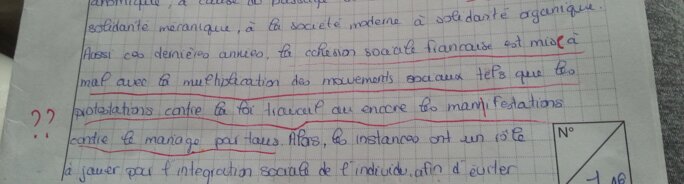 anomique, à cause du passage
solidarité mécanique, à la société moderne à solidarité organique.
Aussi ces dernières années, la cohésion sociale française est mise à
mal avec la multiplication des mouvements sociaux tels que les
protestations contre la loi travail ou encore les manifestations
?? contre le mariage pour tous. Alors, les instances ont un rôle
N°
à jouer pour l'intégration sociale de l'individu, afin d'éviter